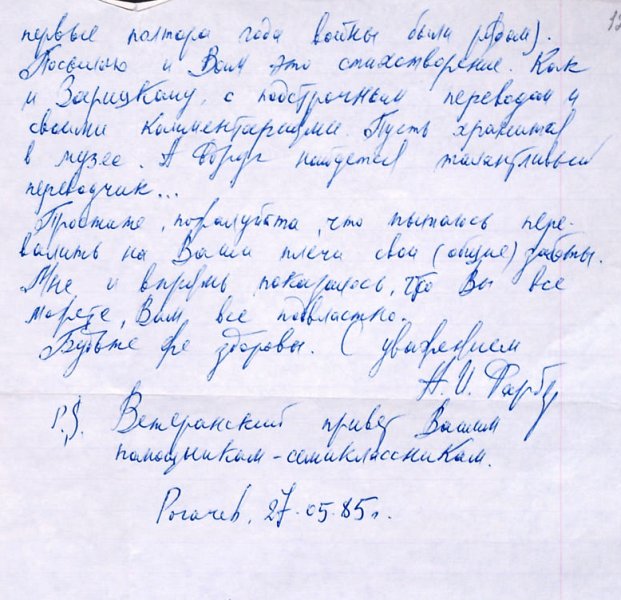 первые полтора года войны были рядом).
Посылаю и Вам это стихотворение. Как
и Зарицкому, с подстрочным переводом и
своими комментариями. Пусть хранится
в музее. А вдруг найдется талантливый
переводчик...
Простите, пожалуйста, что пытаюсь пере-
валить на Ваши плечи свои (общие) заботы.
Мне и впрямь показалось, что Вы все
можете, Вам все подвластно.
Будьте же здоровы. С уважением
А.И. Фарбер
P.S. Ветеранский привет Вашим
помощникам-семиклассникам.
Рогачев, 27.05.85г.